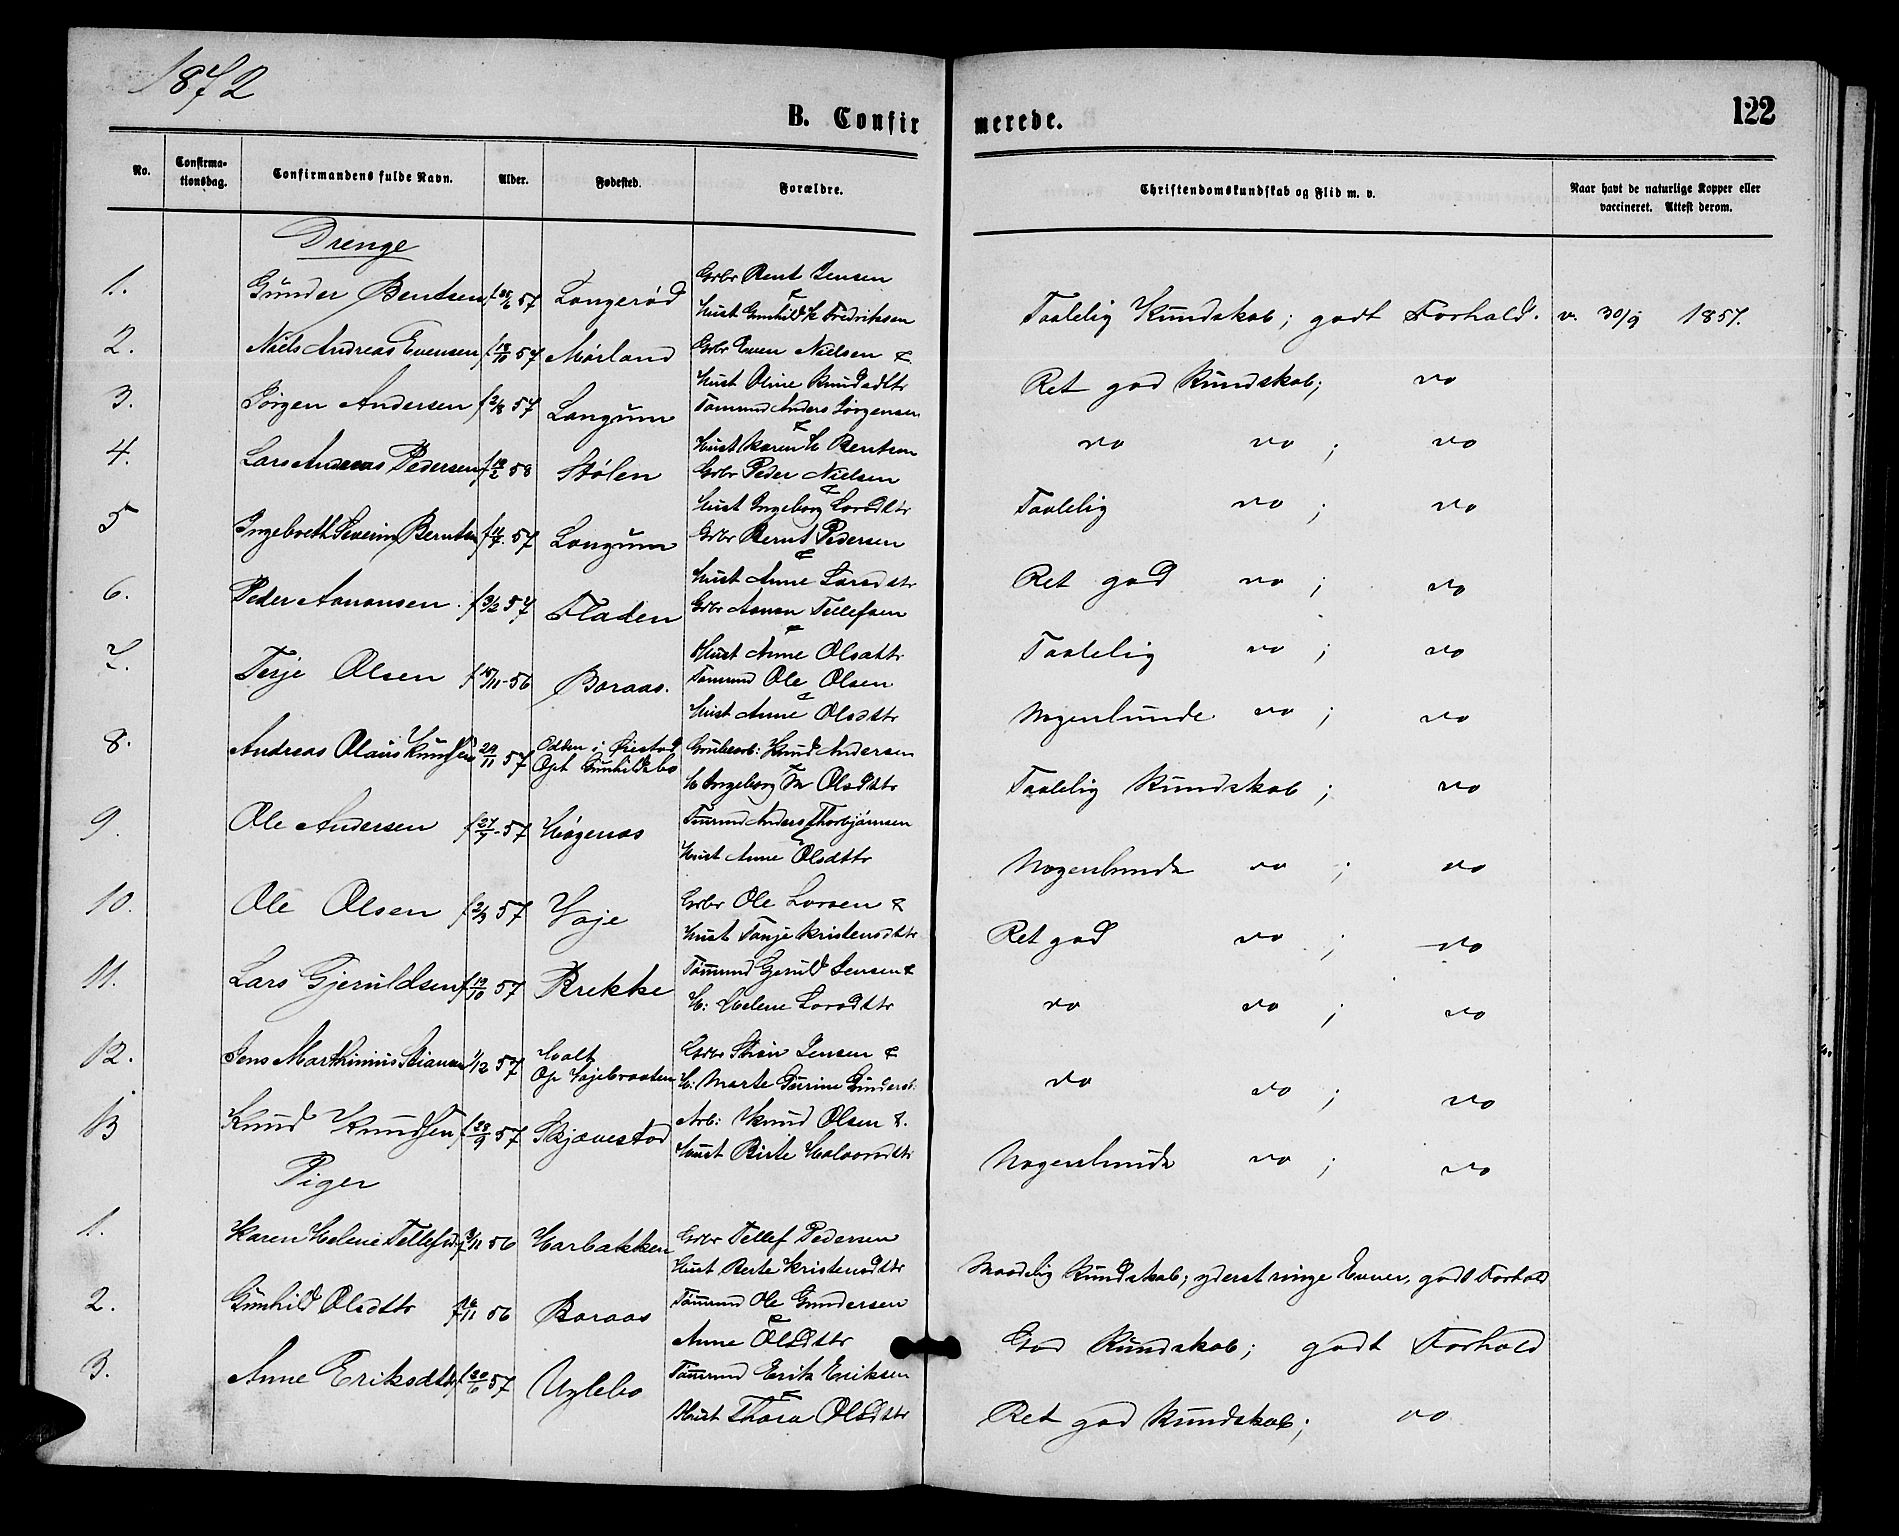 1872
B. Confirmerede.
122
No.
Confirmationsdag.
Confirmandens fulde Navn.
Alder.
Fødested.
Forældre.
Christendomskundskab og Flid m. v.
Naar havt de naturlige Kopper eller vaccineret. Attest derom.
Drenge
1. Gunder Bentsen 57 Longerød Grbr Bent Jensen & Hust Gunhild K Fredriksen Taalelig Kundskab; godt Forhold. v. 30/9 1857.
2. Niels Andreas Evensen f 18/10 57 Mørland Grbr Even Nielsen & Hust Oline Knudsdttr Ret god Kundskab; do
3. Jørgen Andersen f 2/8 57 Langum Tømmd Anders Jørgensen & Hust Karen Bentsen do do ; do
4. Lars Andreas Pedersen 58 Stølen Grbr Peder Nielsen & Hust Ingeborg Larsdttr Taalelig do ; do
5 Ingebreth Severin Berntsen 57 Langum Grbr Bernt Pedersen & Hust Anne Larsdttr Ret god do ; do
6. Peder Aanonsen f 3/2 57 Fladen Grbr Aanon Tellefsen & Hust Anne Olsdttr Taalelig do ; do
7. Terje Olsen 56 Boraas. Tømmd Ole Olsen & Hust Anne Olsdttr Nogenlunde do ; do
8. Andreas Olaus Knudsen 24/11 57 Odden i Øiestad Opt Gunhildsbo Grubearb: Knud Andersen & H Ingeborg M Olsdttr Taalelig Kundskab ; do
9. Ole Andersen f 27/9-57 Høgenas Tømmd Anders Thorbjørnsen & Hust Anne Olsdttr Nogenlunde do ; do
10. Ole Olsen f 2/3 57 Vaje Grbr Ole Larsen & Hust Tanje Kristensdttr Ret god do ; do
11. Lars Gjeruldsen f 19/10 57 Brekke Tømmd Gjeruld Jensen & H: Helene Larsdttr do do ; do
12. Jens Marthinius Stiansen 1/12 57 Holt Op Vajebraaten Grbr Stian Jensen & H: Marte Gurine Gundersd: do do ; do
13 Knud Knudsen f 28/9 57 Skjævestad Arb: Knud Olsen &. Hust Birte Halvorsdttr Nogenlunde do ; do
Piger
1. Karen Helene Tellefsd 56 Harbakken Grbr Tellef Pedersen Hust Berte Kristensdttr Maadelig Kundskab; yderst ringe Evner, godt Forhold
2. Gunhild Olsdttr 56 Boraas Tømmd Ole Gundersen & Anne Olsdttr God Kundskab; godt Forhold
3. Anne Eriksdttr f 20/6 57 Uglebo Tømmd Erik Eriksen & Hust Thora Olsdttr Ret god Kundskab; do